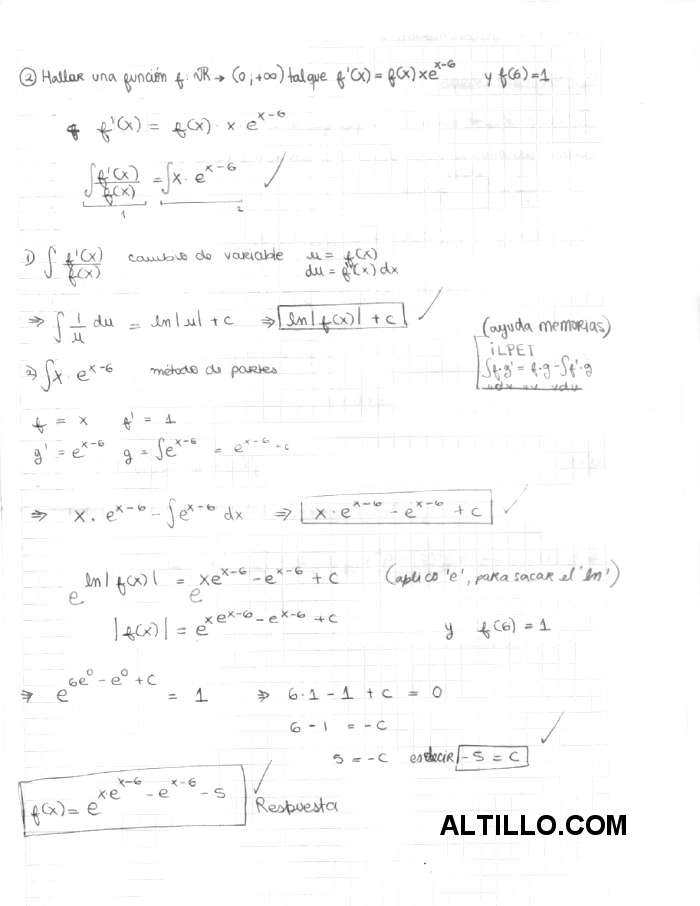 ② Hallar una función f: ℝ → (0;+∞) tal que f'(x) = f(x) x e^{x-6} y f(6)=1
f'(x) = f(x) · x e^{x-6}
∫ f'(x)/f(x) = ∫ x · e^{x-6} ✓
1 2
1) ∫ f'(x)/f(x) cambio de variable u = f(x)
du = f'(x) dx
⇒ ∫ 1/u du = ln|u| + c ⇒ ln|f(x)| + c ✓
(ayuda memorias)
iLPET
∫f·g' = f·g - ∫f'·g
udv uv vdu
2) ∫ x · e^{x-6} método de partes
f = x f' = 1
g' = e^{x-6} g = ∫e^{x-6} = e^{x-6} + c
⇒ x · e^{x-6} - ∫e^{x-6} dx ⇒ x · e^{x-6} - e^{x-6} + c ✓
e^{ln|f(x)|} = e^{xe^{x-6} - e^{x-6} + c} (aplico 'e', para sacar el 'ln')
|f(x)| = e^{xe^{x-6} - e^{x-6} + c} y f(6) = 1
⇒ e^{6e^0 - e^0 + c} = 1 ⇒ 6·1 - 1 + c = 0
6 - 1 = -c
5 = -c es decir -5 = c ✓
f(x) = e^{xe^{x-6} - e^{x-6} - 5} ✓ Respuesta
ALTILLO.COM